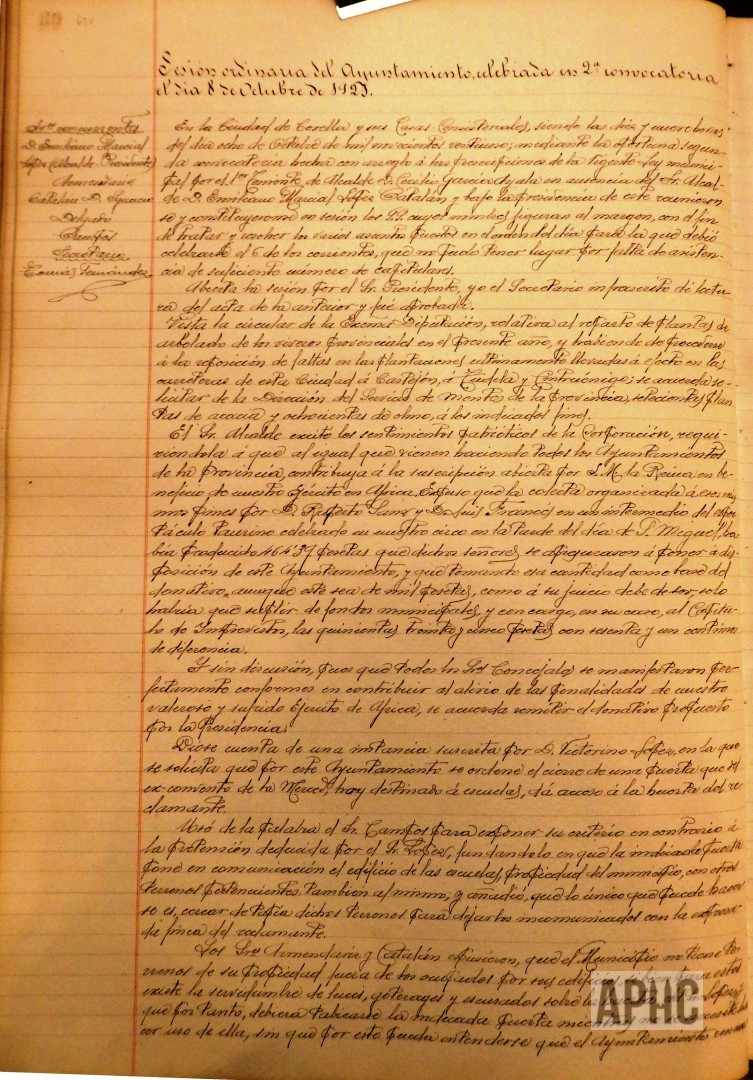 Sesión ordinaria del Ayuntamiento, celebrada en 2ª convocatoria
el dia 8 de Octubre de 1921.
Sres concurrentes
D. Emiliano Marcial
López (Alcalde Presidente)
Armendáriz
Catalán D. Ignacio
Delgado
Campos
Secretario
Tomás Fernández
En la Ciudad de Corella y sus Casas Consistoriales, siendo las diez y nueve horas
del dia ocho de Octubre de mil novecientos veintiuno; mediante la oportuna segun-
da convocatoria hecha con arreglo á las prescripciones de la vigente ley munici-
pal por el 1er Teniente de Alcalde D. Cecilio García Ayala en ausencia del Sr. Alcal-
de D. Emiliano Marcial López Catalán y bajo la Presidencia de este reunieron-
se y constituyeron en sesión los SS. cuyos nombres figuran al margen, con el fin
de tratar y resolver los varios asuntos puestos en el orden del dia para la que debió
celebrarse el 6 de los corrientes, que no pudo tener lugar por falta de asisten-
cia de suficiente número de capitulares.
Abierta la sesión por el Sr. Presidente, yo el Secretario infrascrito dí lectu-
ra del acta de la anterior y fué aprobada.
Vista la circular de la Excma Diputación, relativa al reparto de plantas de
arbolado de los viveros provinciales en el presente año, y habiendo de procederse
á la reposición de faltas en las plantaciones ultimamente llevadas á efecto en las
carreteras de esta Ciudad á Castejón, á Tudela y Cintruénigo; se acuerda so-
licitar de la Dirección del Servicio de Montes de la Provincia, setecientas plan-
tas de acacia y ochocientas de olmo, á los indicados fines.
El Sr. Alcalde excitó los sentimientos patrióticos de la Corporación, requi-
riendola á que al igual que vienen haciendo todos los Ayuntamientos
de la Provincia, contribuya á la suscripción abierta por S. M. la Reina en be-
neficio de nuestro Ejército en Africa. Expuso que la colecta organizada á esos mis-
mos fines por D. Ruperto Sanz y D. Luis Francés en un intermedio del espec-
táculo taurino celebrado en nuestro circo en la tarde del dia de S. Miguel, ha-
bía producido 464'39 pesetas que dichos señores se apresuraron á poner á dis-
posición de este Ayuntamiento, y que tomando esa cantidad como base del
donativo, aunque este sea de mil pesetas, como á su juicio debe de ser, solo
habría que suplir de fondos municipales, y con cargo, en su caso, al Capitu-
lo de Imprevistos, las quinientas treinta y cinco pesetas con sesenta y un centimos
de diferencia.
Y sin discusión, pues que todos los Sres Concejales se manifestaron per-
fectamente conformes en contribuir al alivio de las penalidades de nuestro
valeroso y sufrido Ejército de Africa, se acuerda remitir el donativo propuesto
por la Presidencia.
Diose cuenta de una instancia suscrita por D. Victorino López, en la que
se solicita que por este Ayuntamiento se ordene el cierre de una puerta que del
ex-convento de la Merced, hoy destinado á escuelas, dá acceso á la huerta del re-
clamante.
Usó de la palabra el Sr. Campos para exponer su criterio en contrario á
la pretensión deducida por el Sr. López, fundandolo en que la indicada puerta
pone en comunicación el edificio de las escuelas, propiedad del municipio, con otros
terrenos pertenecientes también al mismo; y añadió, que lo único que puede hacer-
se es, cercar de tapia dichos terrenos para dejarlos incomunicados con la expresa-
da finca del reclamante.
Los Sres Armendáriz y Catalán expusieron, que el Municipio no tiene te-
rrenos de su propiedad fuera de los ocupados por sus edificios
existe la servidumbre de luces, goterages y escurados sobre la
que por tanto, debiera tabicarse la indicada puerta mientras
cer uso de ella, sin que por esto pueda entenderse que el Ayuntamiento
APHC